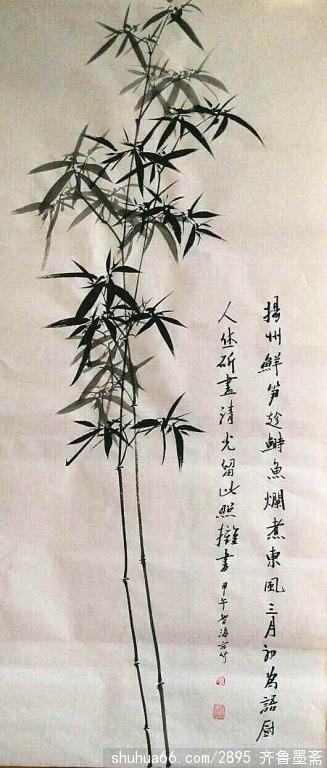 揚州鮮笋趁鰣魚爛煮東風三月初為語厨
人休斫盡清光留此照攤書 甲午
shuhua66.com/2895 齐鲁墨斋